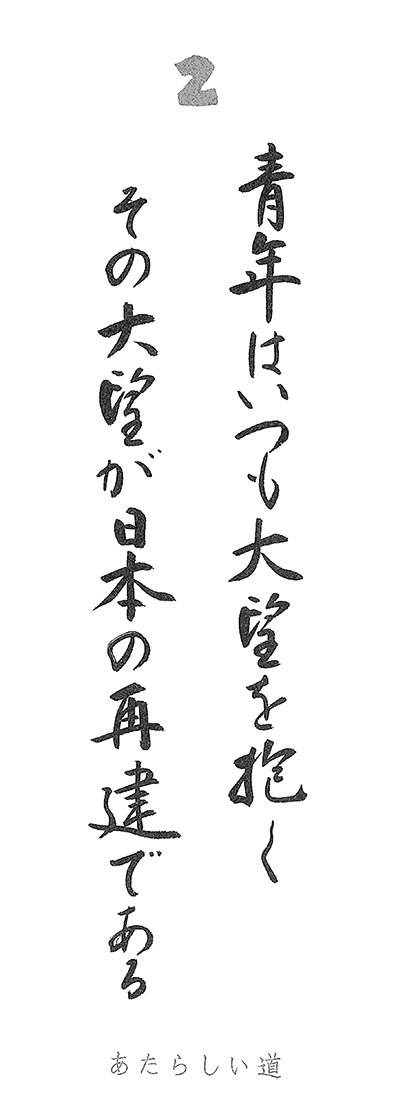 2
青年はいつも大望を抱く
その大望が日本の再建である
あたらしい道